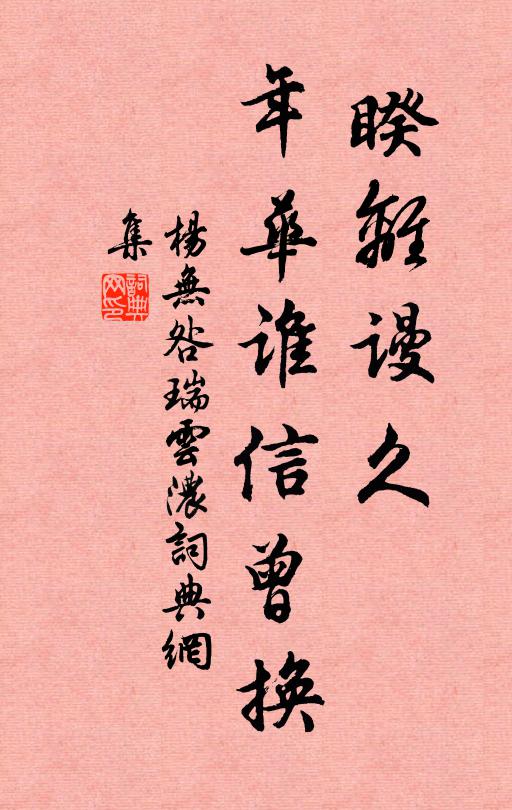 睽離謾久
年華誰信曾換
楊無咎瑞雲濃詞典網
集
詞典网印